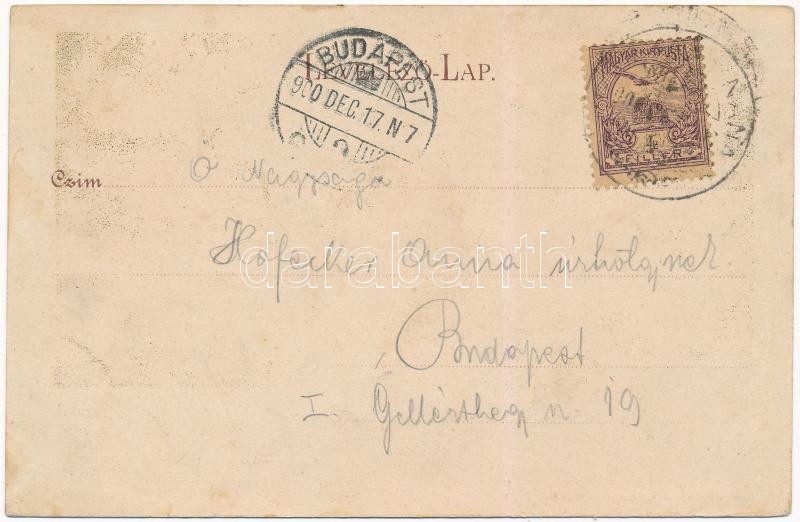 LEVELEZŐ-LAP.
BUDAPEST
900 DEC. 17. N 7
MAGYAR KIR. POSTA
4
FILLÉR
NÁNA
Czim
Ő Nagysága
Hofecker Anna úrhölgynek.
Budapest
I. Gellérthegy u. 19
darabanth